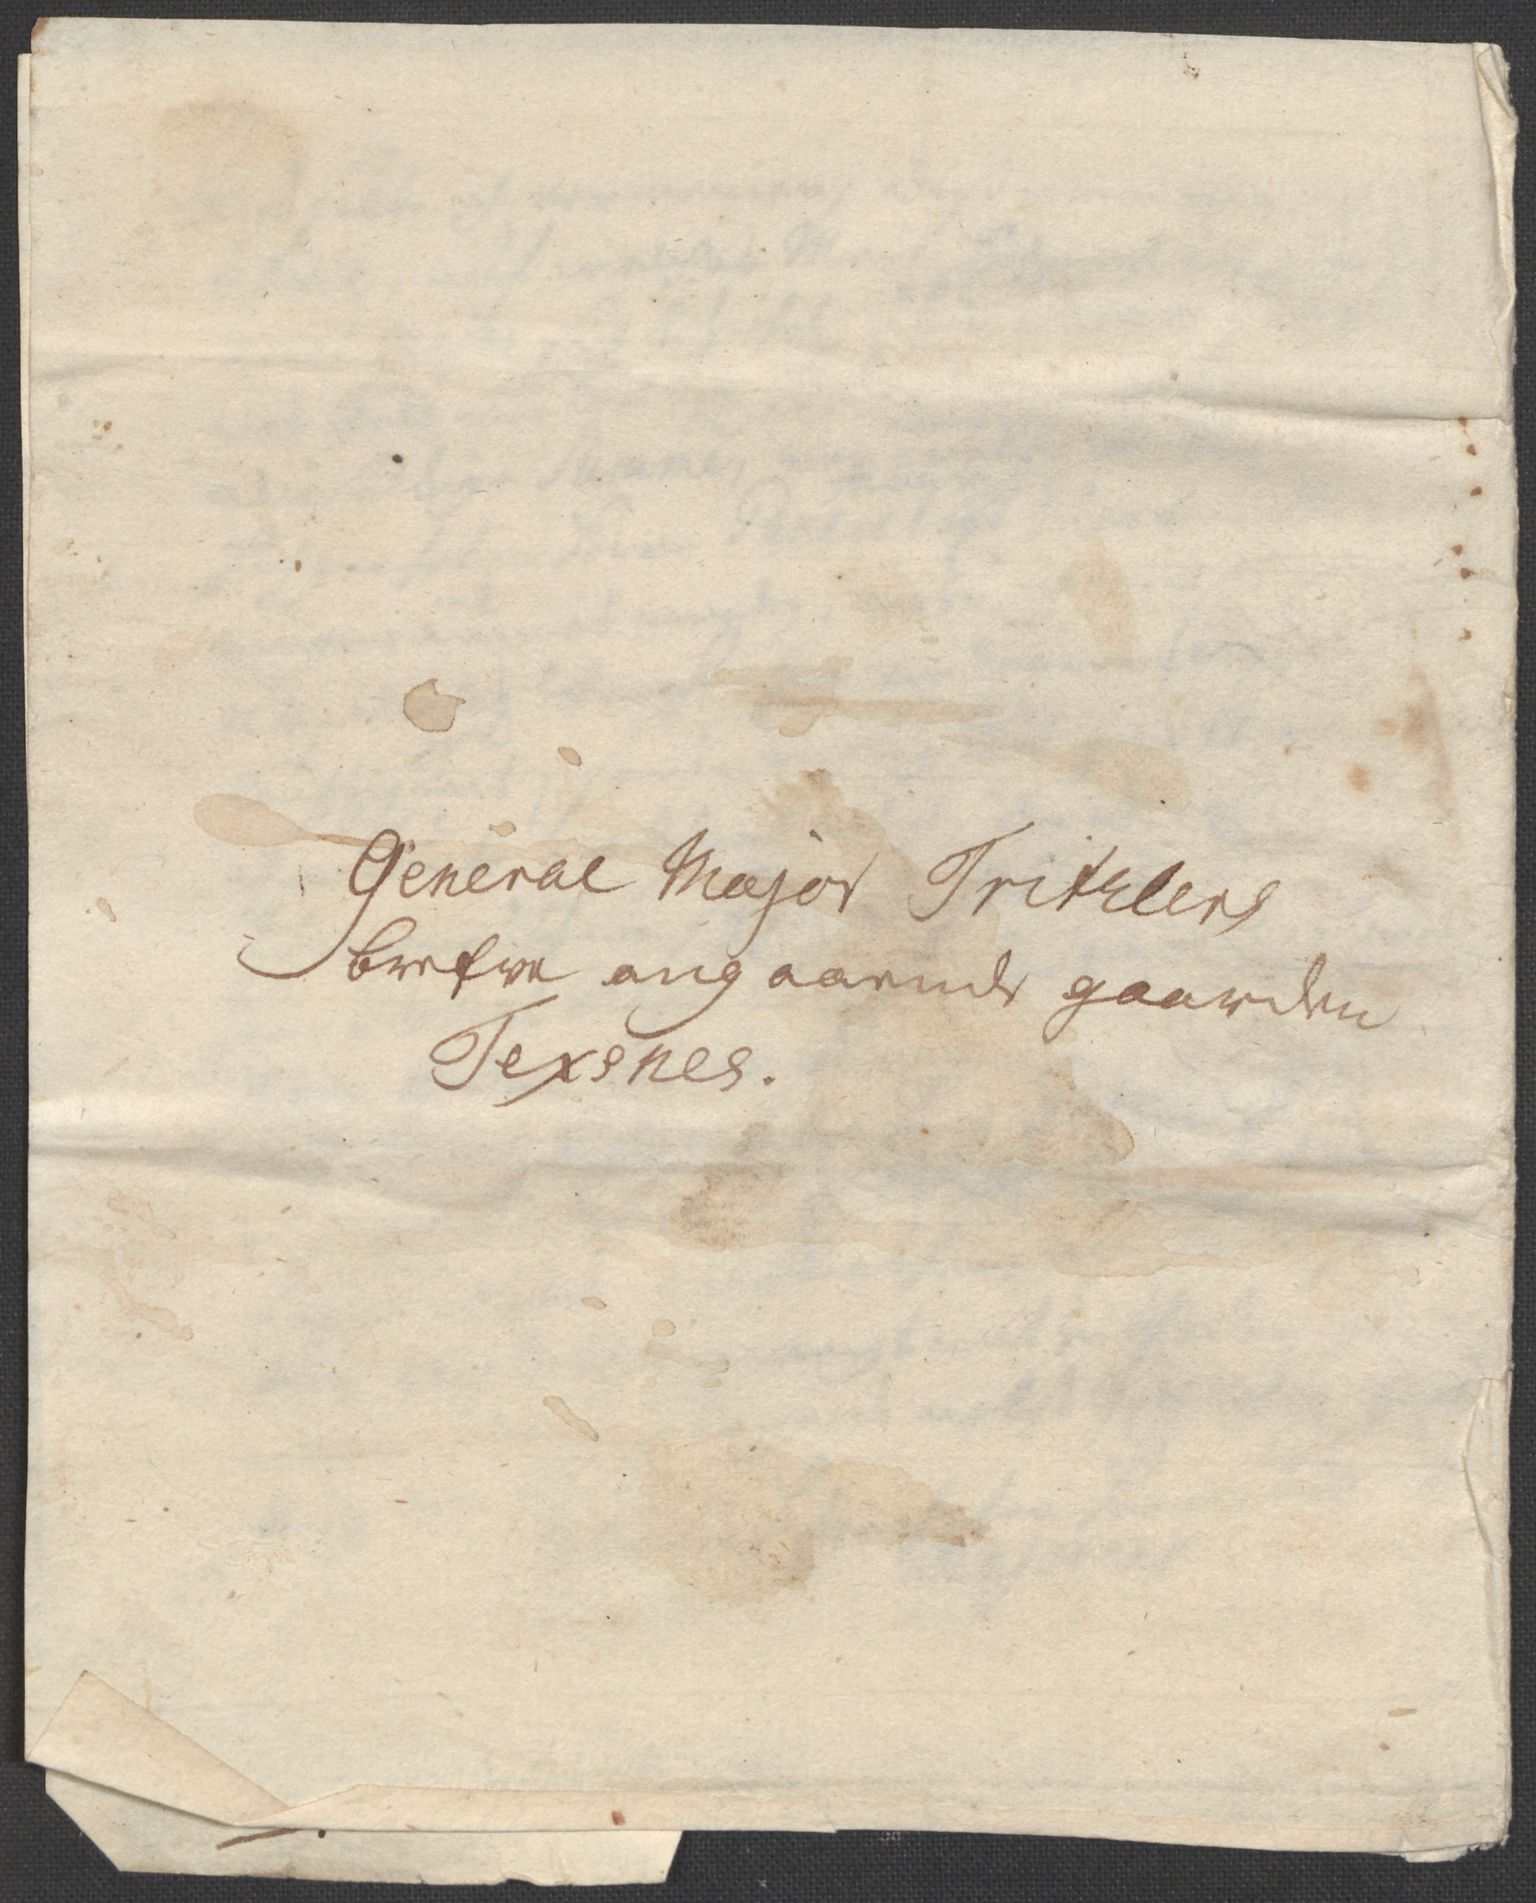 General Major Tritzlers
brefve angaaende gaarden
Texsnes.